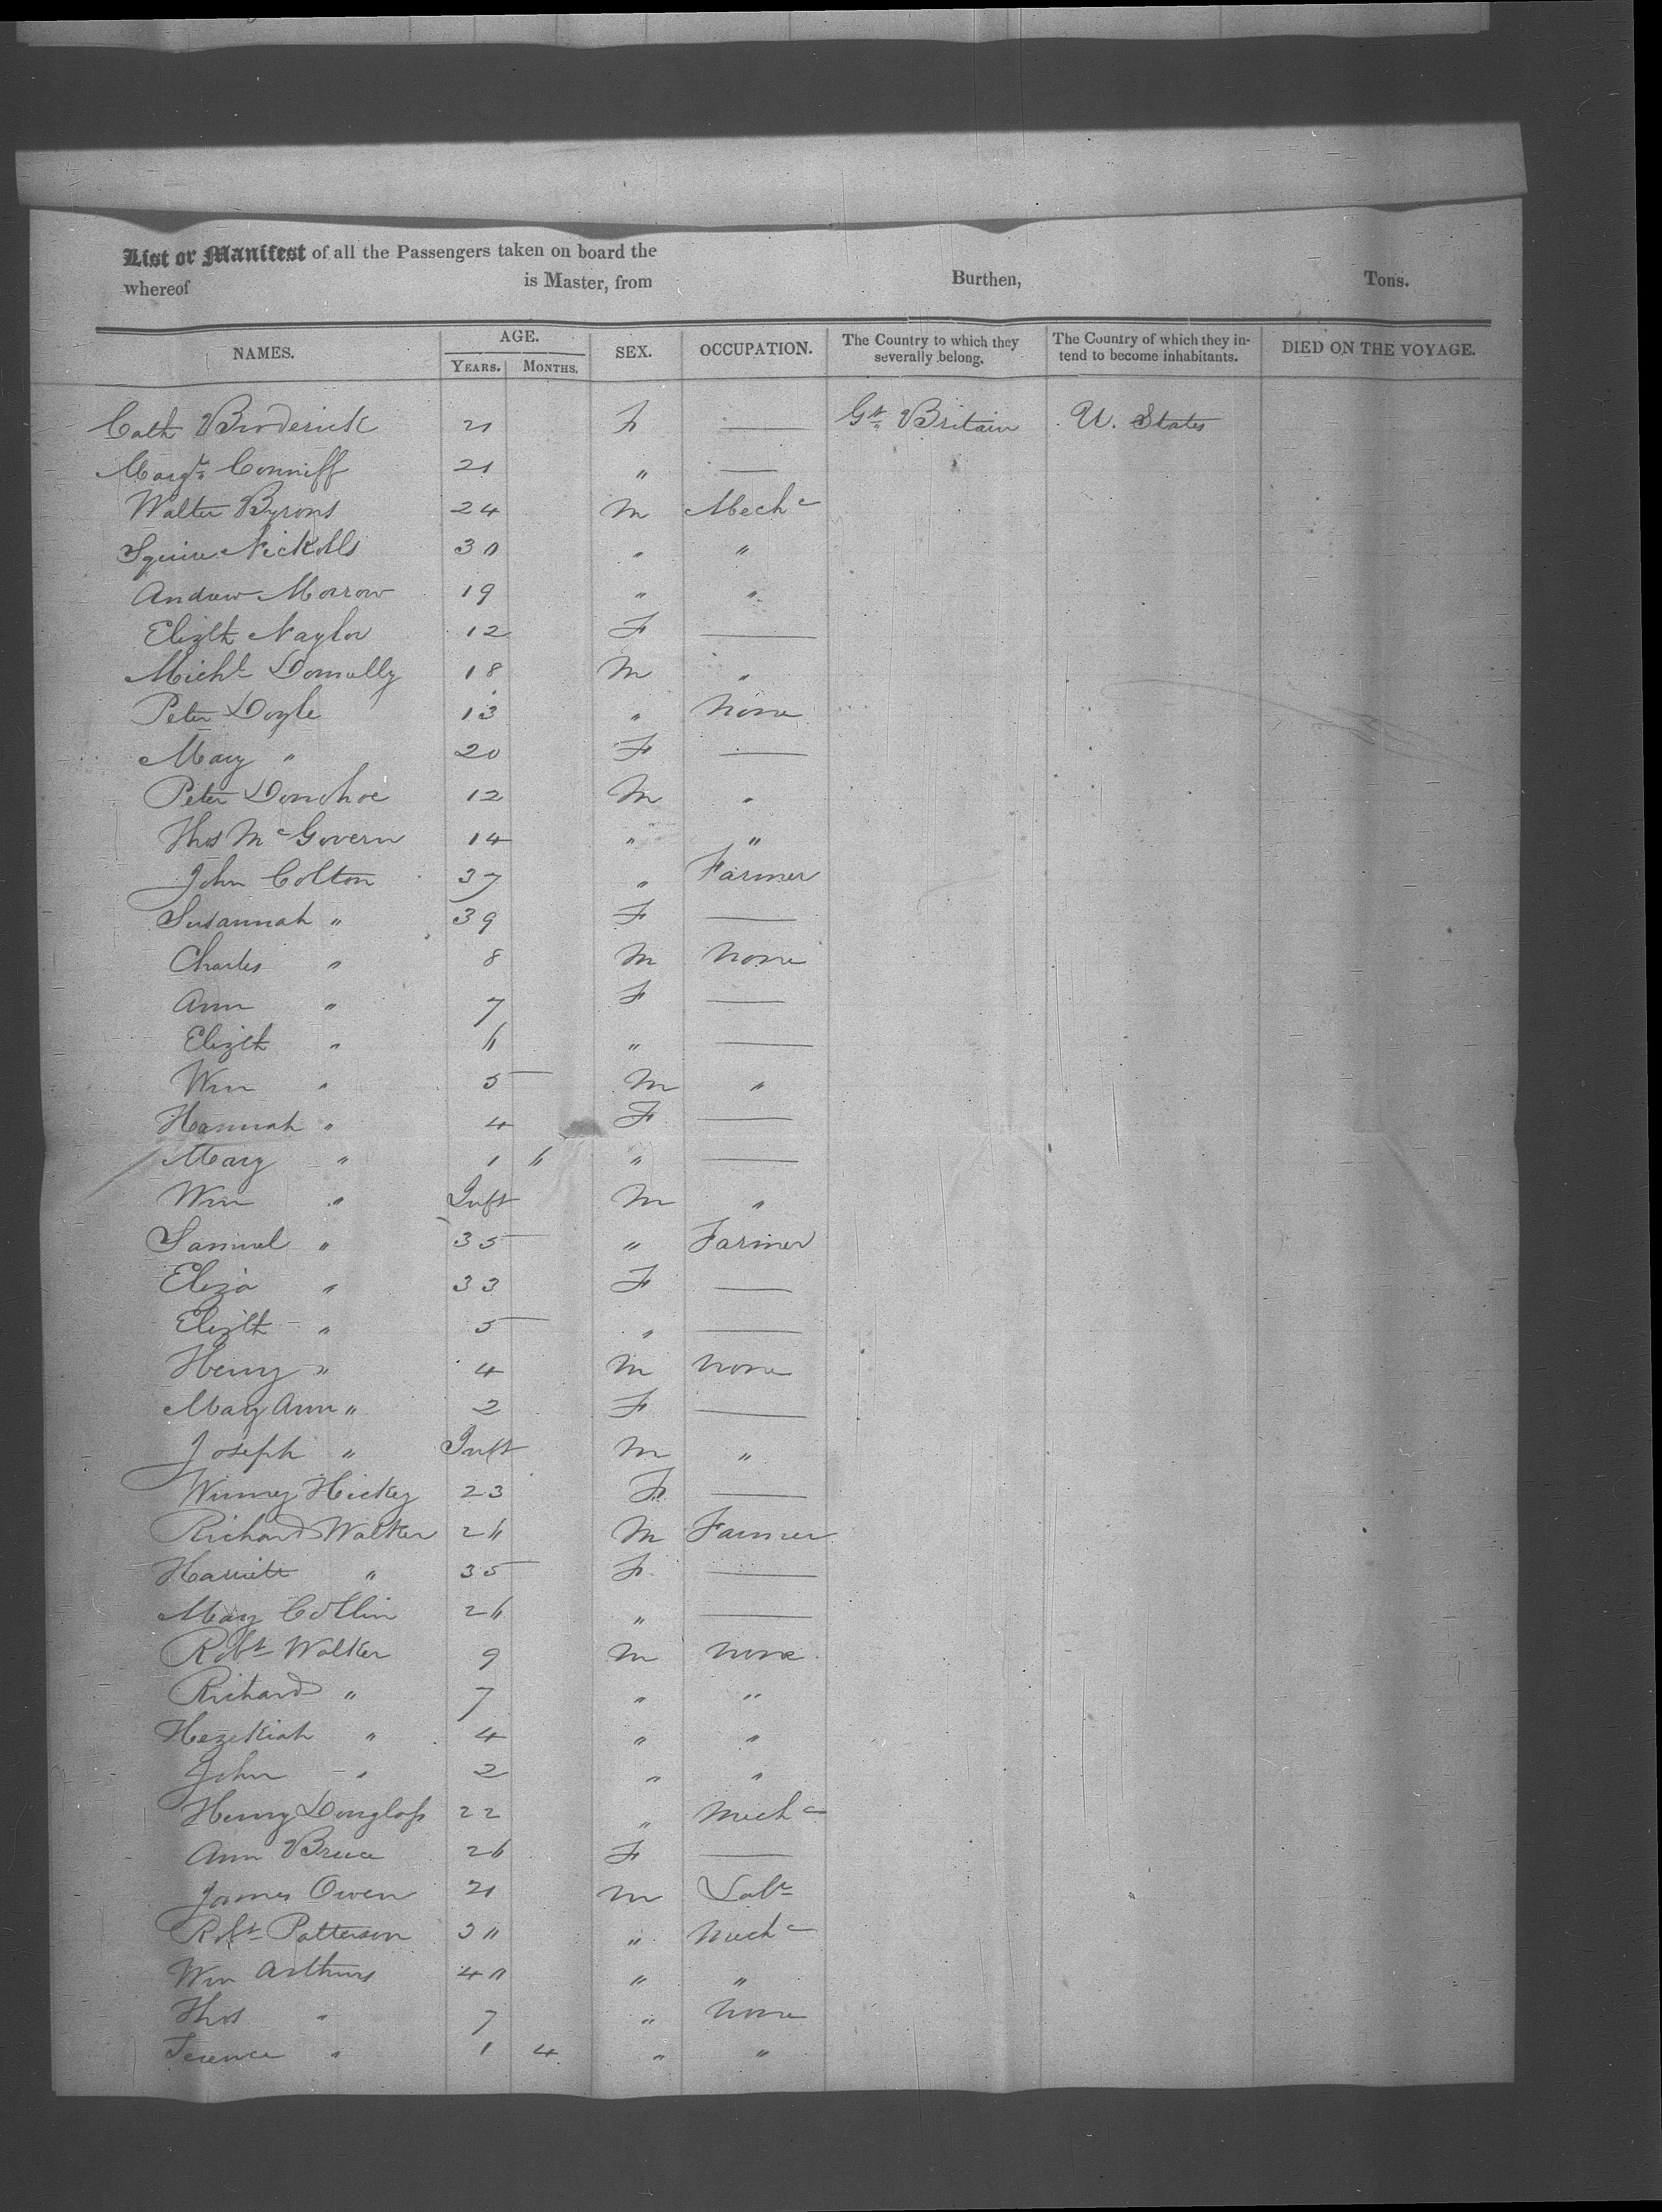 List or Manifest of all the Passengers taken on board the
whereof is Master, from Burthen, Tons.
NAMES. AGE. YEARS. MONTHS. SEX. OCCUPATION. The Country to which they severally belong. The Country of which they intend to become inhabitants. DIED ON THE VOYAGE.
Cath Broderick 21 F — Gt. Britain U. States
Margt Conniff 21 " —
Walter Byrons 24 M Mechc
Squire Nickolls 30 " "
Andrew Morrow 19 " "
Elizth Naylor 12 F —
Michl Donnelly 18 M "
Peter Doyle 13 " None
Mary " 20 F —
Peter Donohoe 12 M "
Thos McGovern 14 " "
John Colton 37 " Farmer
Susannah " 39 F —
Charles " 8 M None
Ann " 7 F —
Elizth " 6 " —
Wm " 5 M "
Hannah " 4 F —
Mary " 1 6 " —
Wm " Inft M "
Samuel " 35 " Farmer
Eliza " 33 F —
Elizth " 5 " —
Henry " 4 M None
Mary Ann " 2 F —
Joseph " Inft M "
Winney Hickey 23 F —
Richard Walker 26 M Farmer
Harriett " 35 F —
Mary Collin 26 " —
Robt Walker 9 M None
Richard " 7 " "
Hezekiah " 4 " "
John " 2 " "
Henry Douglass 22 " Mechc
Ann Bruce 26 F —
James Owen 21 M Labr
Robt Patterson 30 " Mechc
Wm Arthurs 40 " "
Thos " 7 " None
Terence " 1 4 " "